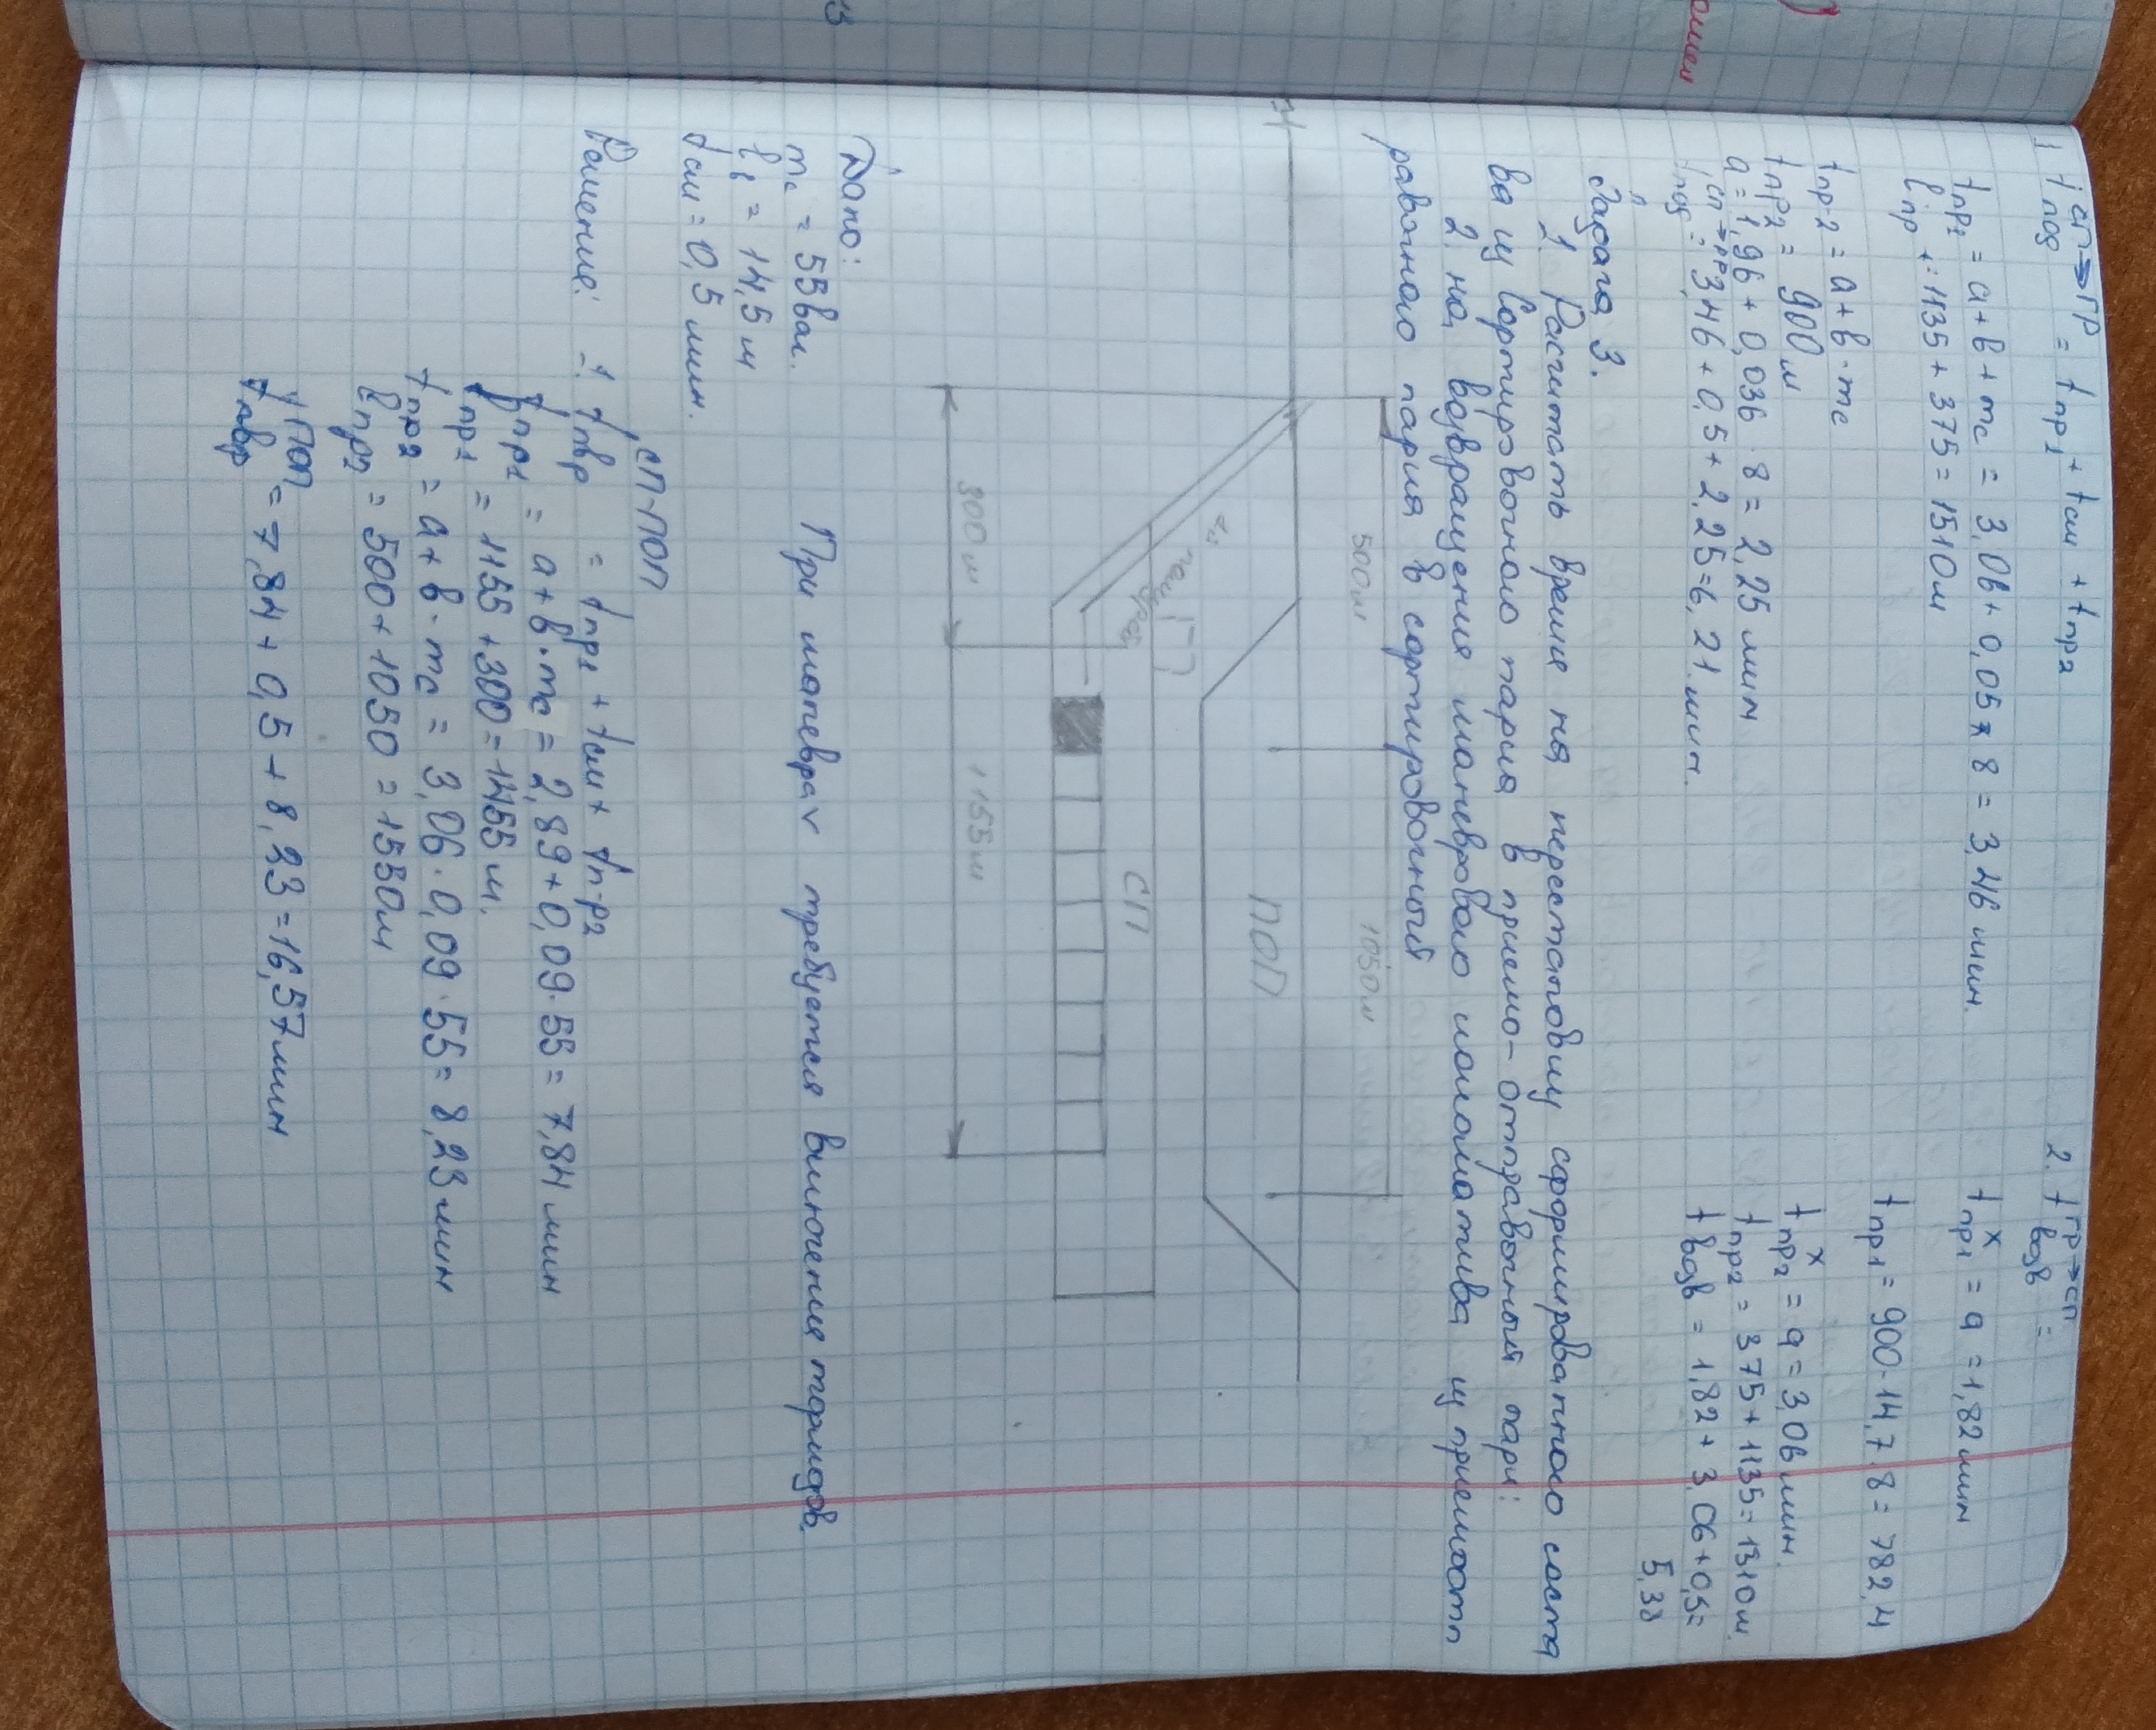 1 t под СП→ГР = t пр1 + t см + t пр2
t пр1 = a + в + mc = 3,06 + 0,05 × 8 = 3,46 мин.
ℓ пр1 = 1135 + 375 = 1510м
t пр-2 = a + в · mc
t пр2 = 900м
a = 1,96 + 0,036 · 8 = 2,25 мин
t под СП→ГР = 3,46 + 0,5 + 2,25 = 6,21 мин.
2. t возв ГР→СП =
t пр1 х = a = 1,82 мин
t пр1 = 900 - 14,7 · 8 = 782,4
t пр2 х = a = 3,06 мин.
t пр2 = 375 + 1135 = 1310м.
t возв = 1,82 + 3,06 + 0,5 =
5,38
Задача 3.
1. Расчитать время на перестановку сформированного соста
ва из сортировочного парка в приемо-отправочный парк:
2. на возвращения маневрового локомотива из приемоотп
равочного парка в сортировочный
500м
1050м
ПОП
СП
300м
1155м
Дано:
mc = 55 ваг.
ℓв = 14,5 м
tсм = 0,5 мин.
При маневрах требуется включения тормозов.
Решение: 1. t пвр СП-ПОП = t пр1 + t см + t п-р2
t пр1 = a + в · mc = 2,89 + 0,09 · 55 = 7,84 мин
ℓ пр1 = 1155 + 300 = 1455 м.
t пр2 = a + в · mc = 3,06 · 0,09 · 55 = 8,23 мин
ℓ пр2 = 500 + 1050 = 1550м
ПОП = 7,84 + 0,5 + 8,23 = 16,57 мин